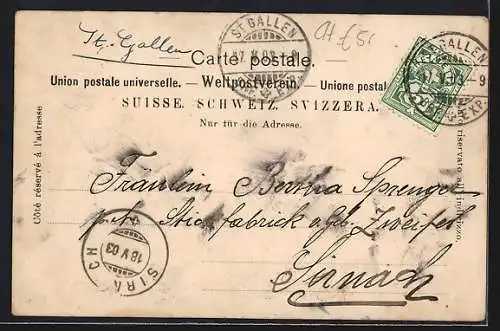 St. Gallen
ST. GALLEN
17.V.03.-9
BRF.EXP.
Carte postale.
Union postale universelle. — Weltpostverein. — Unione postale
SUISSE. SCHWEIZ. SVIZZERA.
Nur für die Adresse.
Côté réservé à l'adresse
riservato all'indirizzo.
ST. GALLEN
17.V.03.-9
BRF.EXP.
Fräulein Bertha Sprenger
Stickfabrick Zweifel
Sirnach
SIRNACH
18.V.03